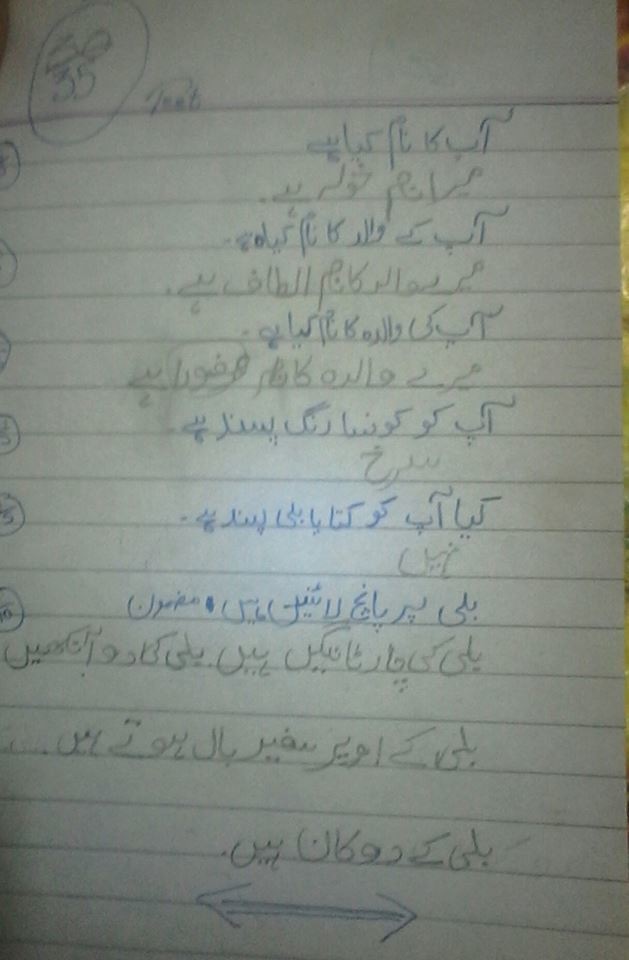 30
35
Test
آپ کا نام کیا ہے
میرا نام خولہ ہے.
آپ کے والد کا نام کیا ہے.
میرے والد کا نام الطاف ہے.
آپ کی والدہ کا نام کیا ہے.
میرے والدہ کا نام ہے
آپ کو کونسا رنگ پسند ہے.
سرخ
کیا آپ کو کتا یا بلی پسند ہے.
نہیں
بلی پر پانچ لائنیں ہیں، مضمون
بلی کی چار ٹانگیں ہیں بلی کا دو آنکھیں
بلی کے اوپر سفیر بال ہوتے ہیں...
بلی کے دو کان ہیں.